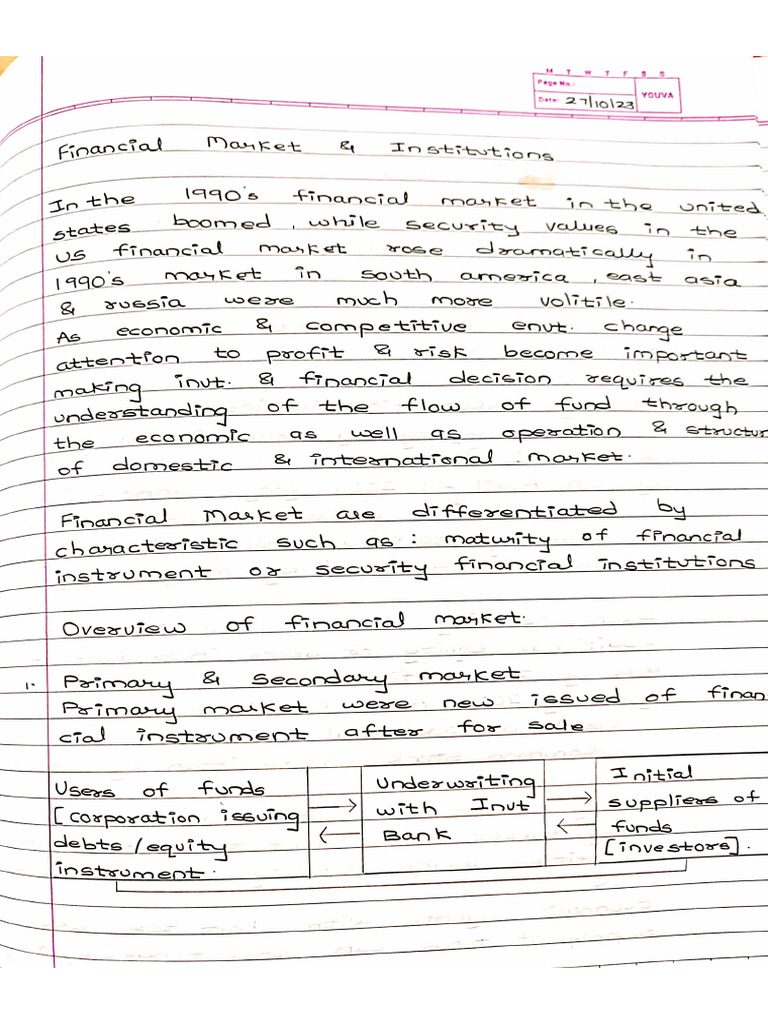 M T W T F S S
Page No.:
Date: 27/10/23
YOUVA
Financial Market & Institutions
In the 1990's financial market in the united
states boomed, while security values in the
US financial market rose dramatically in
1990's market in south america, east asia
& russia were much more volitile.
As economic & competitive envt. change
attention to profit & risk become important
making invt. & financial decision requires the
understanding of the flow of fund through
the economic as well as operation & structur
of domestic & international market.
Financial Market are differentiated by
characteristic such as: maturity of financial
instrument or security financial institutions
Overview of financial market.
1. Primary & secondary market
Primary market were new issued of finan
cial instrument after for sale
Users of funds
[corporation issuing
debts/equity
instrument.
Underwriting
with Invt
Bank
Initial
suppliers of
funds
[investors].